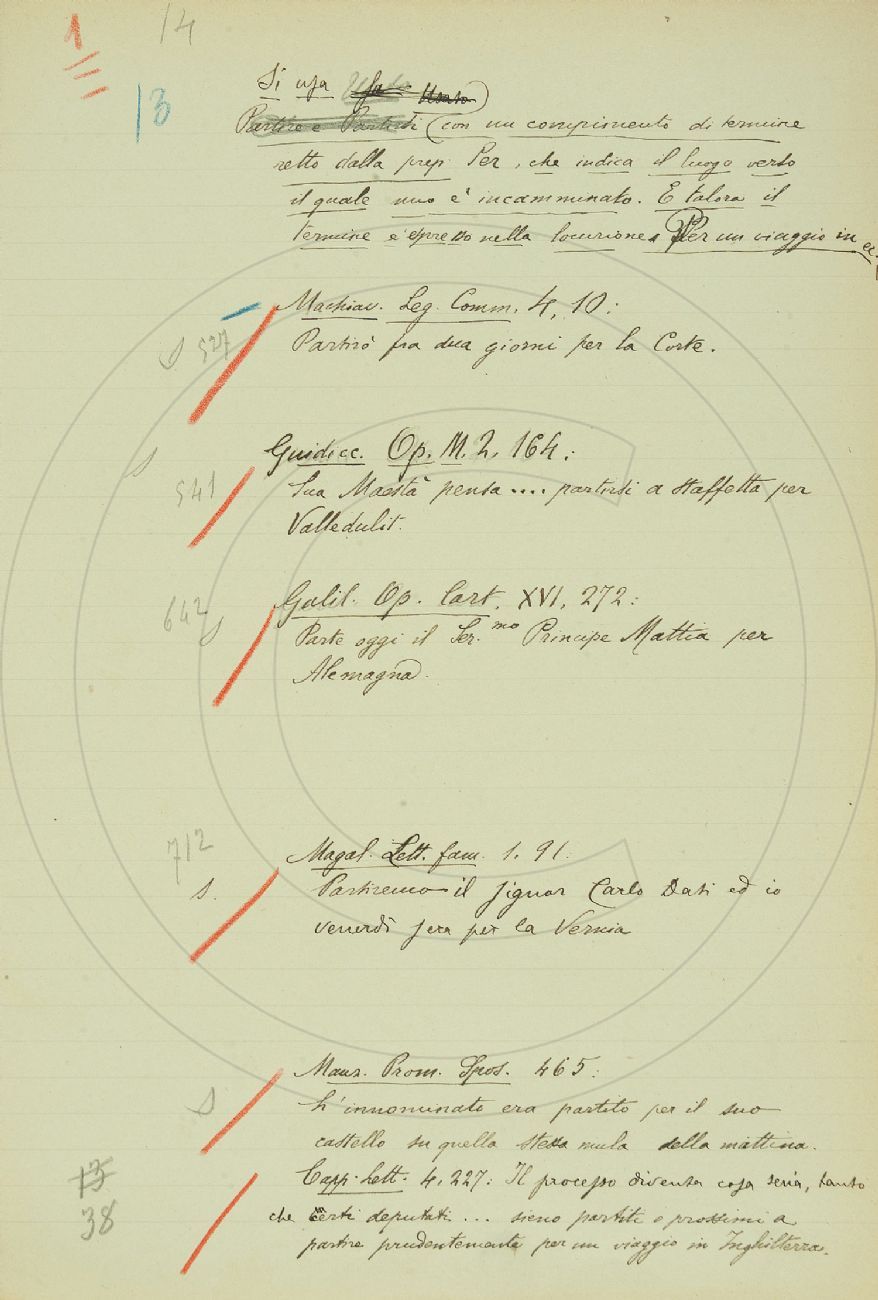 1 14
13
Si usa Usato
Partire e Partirsi (con un compimento di termine
retto dalla prep. Per, che indica il luogo verso
il quale uno è incamminato. E talora il
termine è espresso nella locuzione Per un viaggio in
Machiav. Leg. Comm. 4, 10:
S 527 Partirò fra dua giorni per la Corte.
Guidicc. Op. M. 2, 164:
S 541 Sua Maestà pensa .... partirsi a staffetta per
Valledulit.
Galil. Op. Cart. XVI, 272:
642 S Parte oggi il Ser.mo Principe Mattia per
Alemagna.
712 Magal. Lett. fam. 1, 91:
S. Partiremo il Signor Carlo Dati ed io
venerdì sera per la Vernia
Manz. Prom. Spos. 465:
S L'innominato era partito per il suo
castello su quella stessa mula della mattina.
13 Capp. Lett. 4, 227: Il processo diventa cosa seria, tanto
38 che certi deputati... sieno partiti o prossimi a
partire prudentemente per un viaggio in Inghilterra.